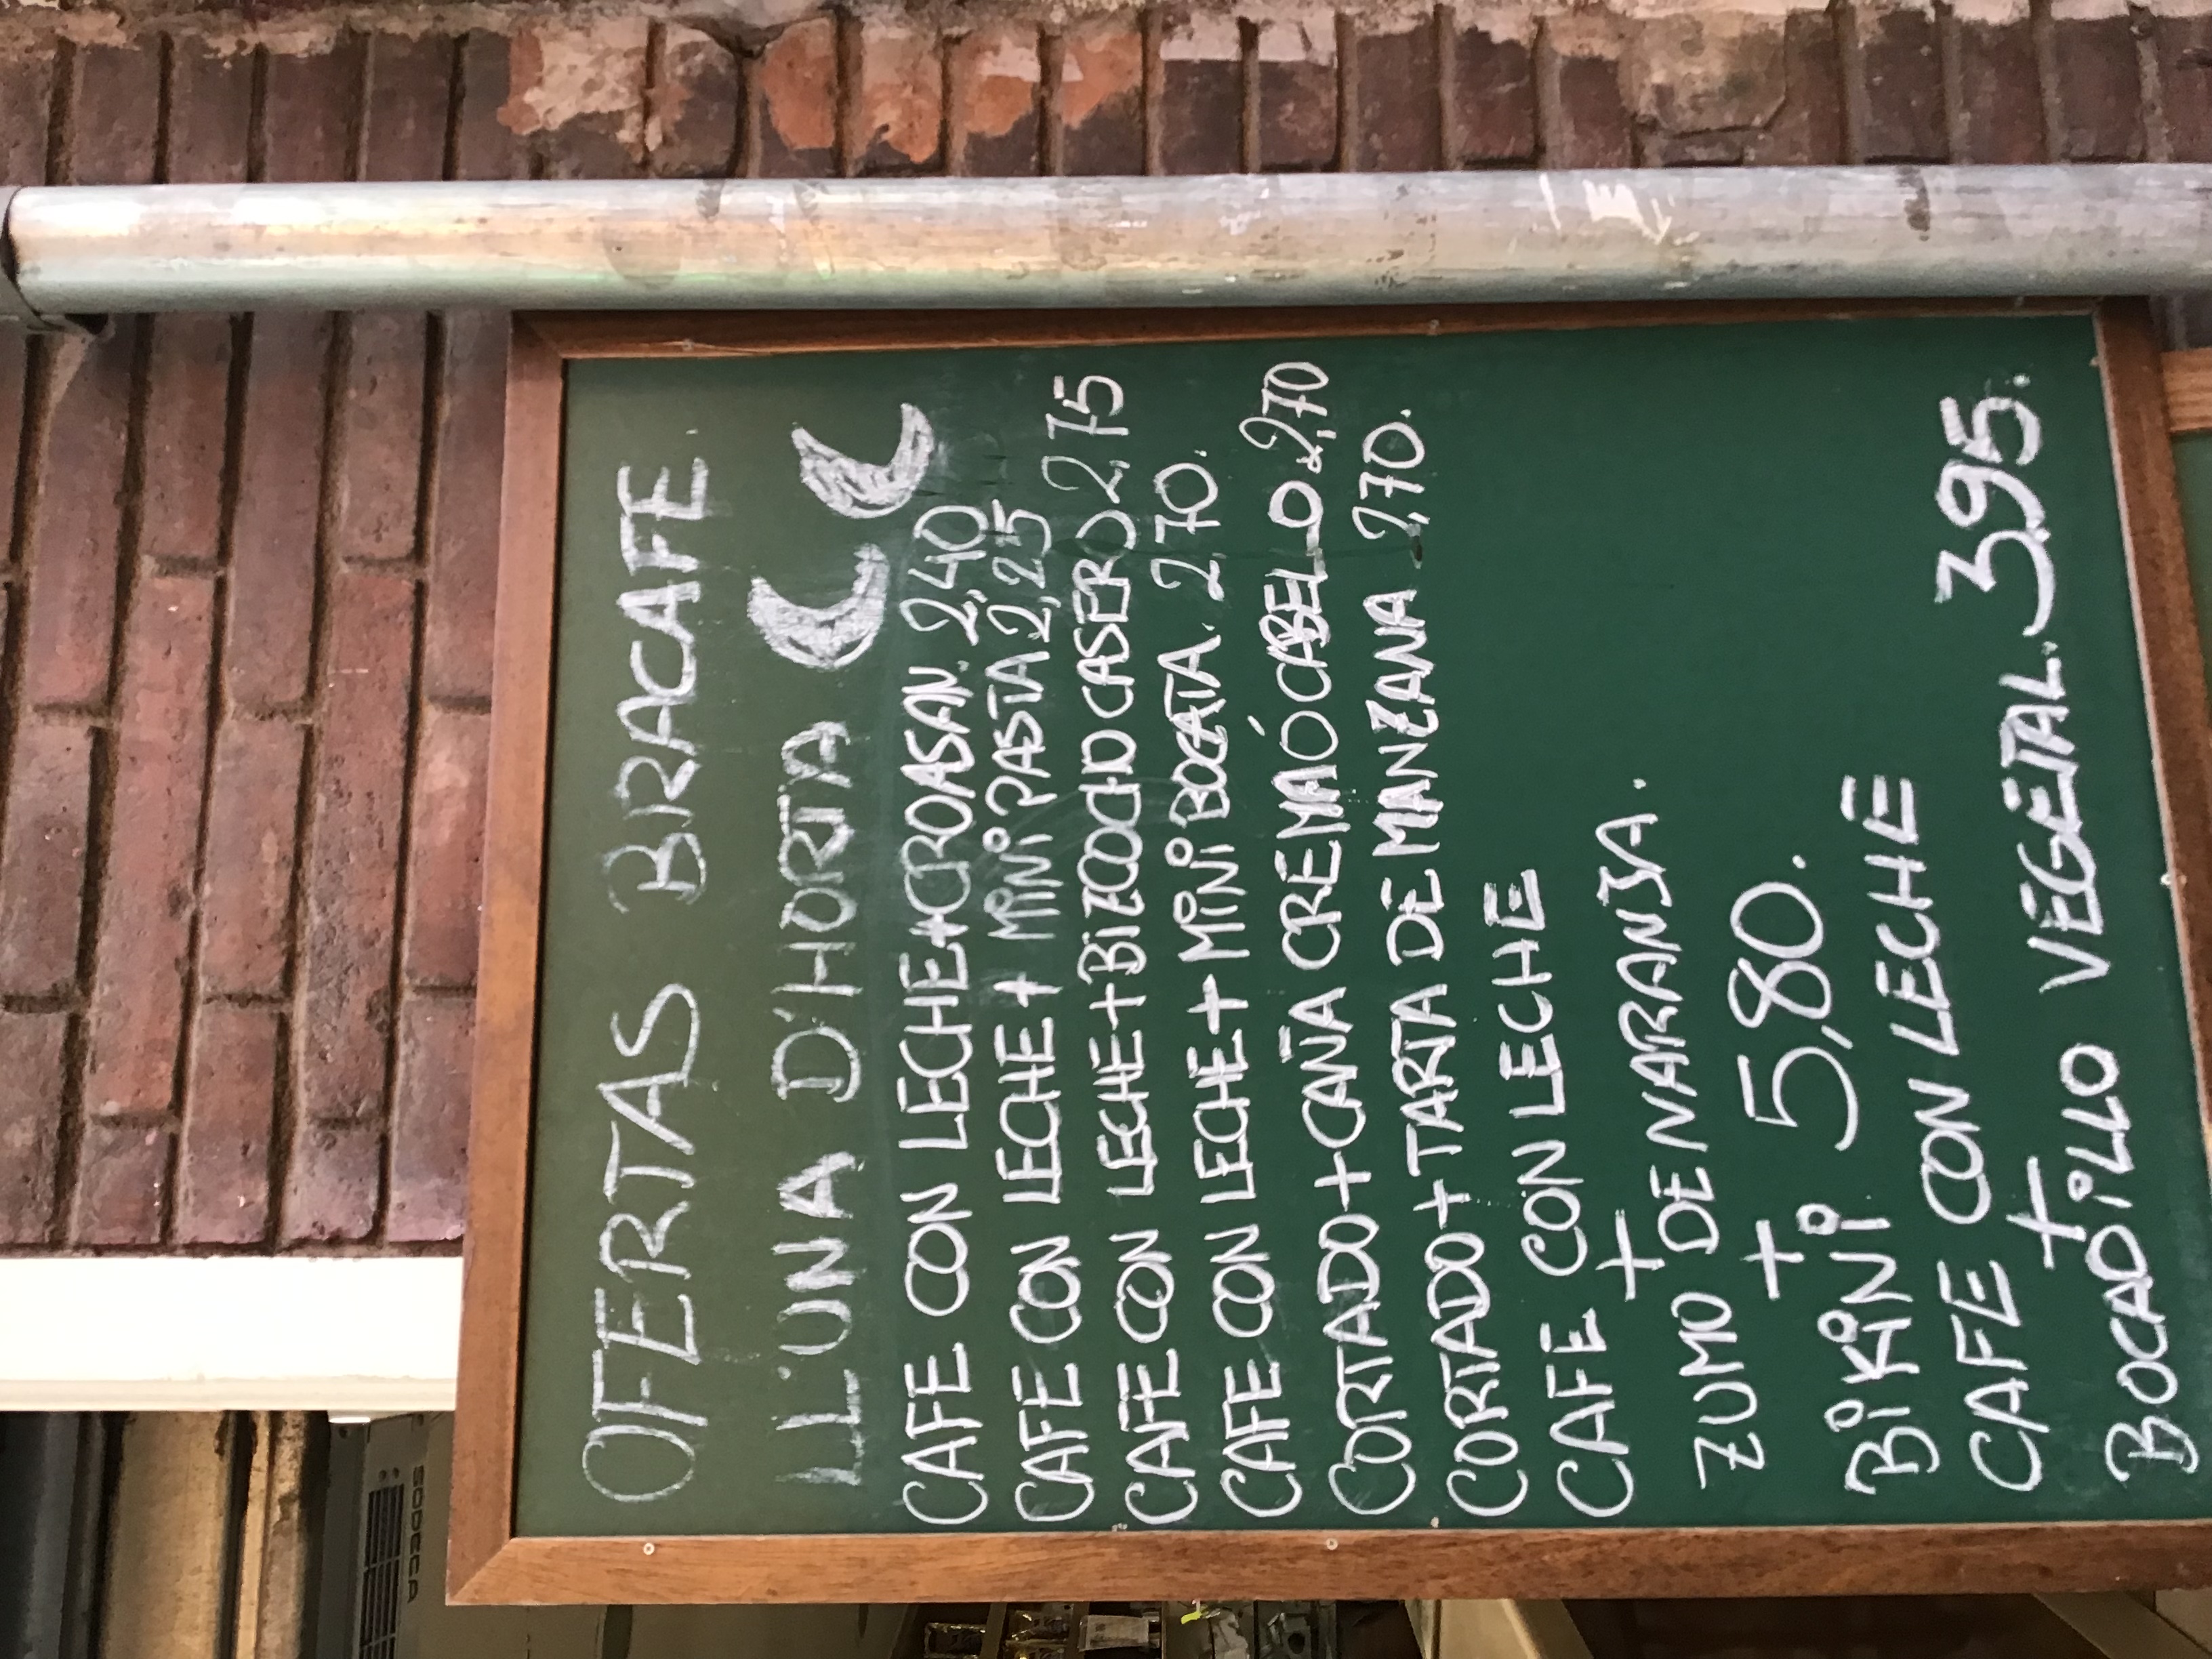 OFERTAS BRACAFE.
LLUNA D'HORTA
CAFE CON LECHE+CROASAN. 2,40
CAFE CON LECHE + MINI PASTA 2,25
CAFE CON LECHE+BIZCOCHO CASERO 2,75
CAFE CON LECHE + MINI BOCATA. 2,70.
CORTADO+CAÑA CREMA Ó CABELLO 2,70
CORTADO + TARTA DE MANZANA 2,70.
CAFE CON LECHE
+
ZUMO DE NARANJA.
+
BIKINI 5,80.
CAFE CON LECHE
+
BOCADILLO VEGETAL. 3,95.
SODECA